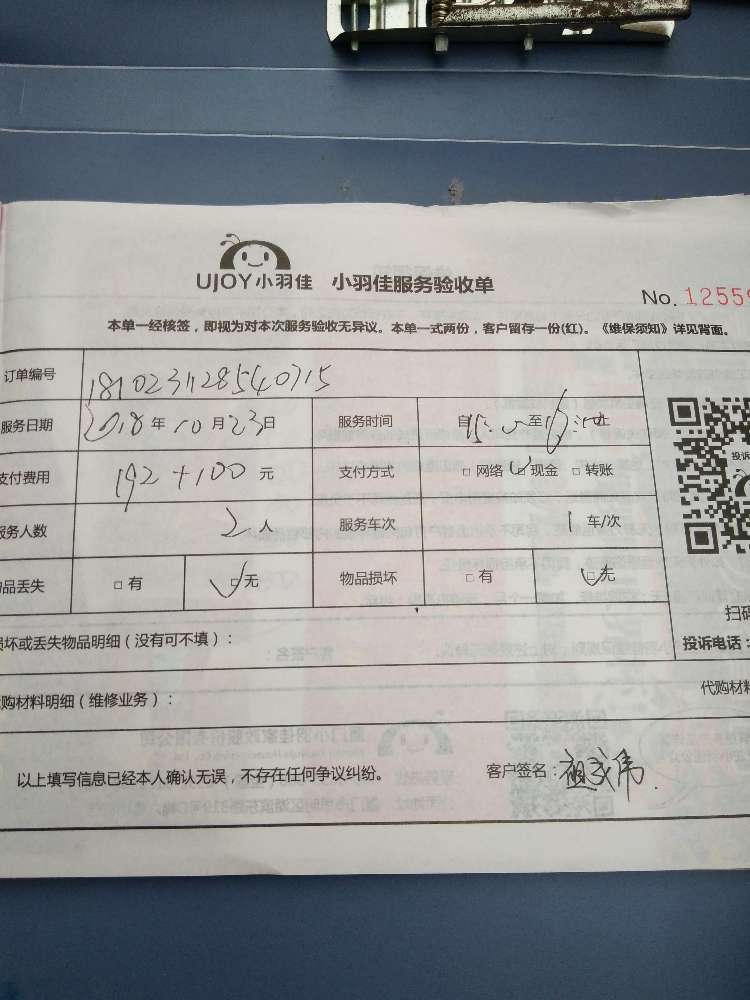 UJOY小羽佳 小羽佳服务验收单
No. 1255
本单一经核签，即视为对本次服务验收无异议。本单一式两份，客户留存一份(红)。《维保须知》详见背面。
订单编号 1810231128540715
服务日期 2018年10月23日 服务时间 自 至 止
支付费用 192+100元 支付方式 □网络 □现金 □转账
服务人数 2人 服务车次 1车/次
物品丢失 □有 □无 物品损坏 □有 □无
损坏或丢失物品明细（没有可不填）：
投诉
扫码
投诉电话：
代购材料明细（维修业务）：
代购材料
以上填写信息已经本人确认无误，不存在任何争议纠纷。 客户签名：